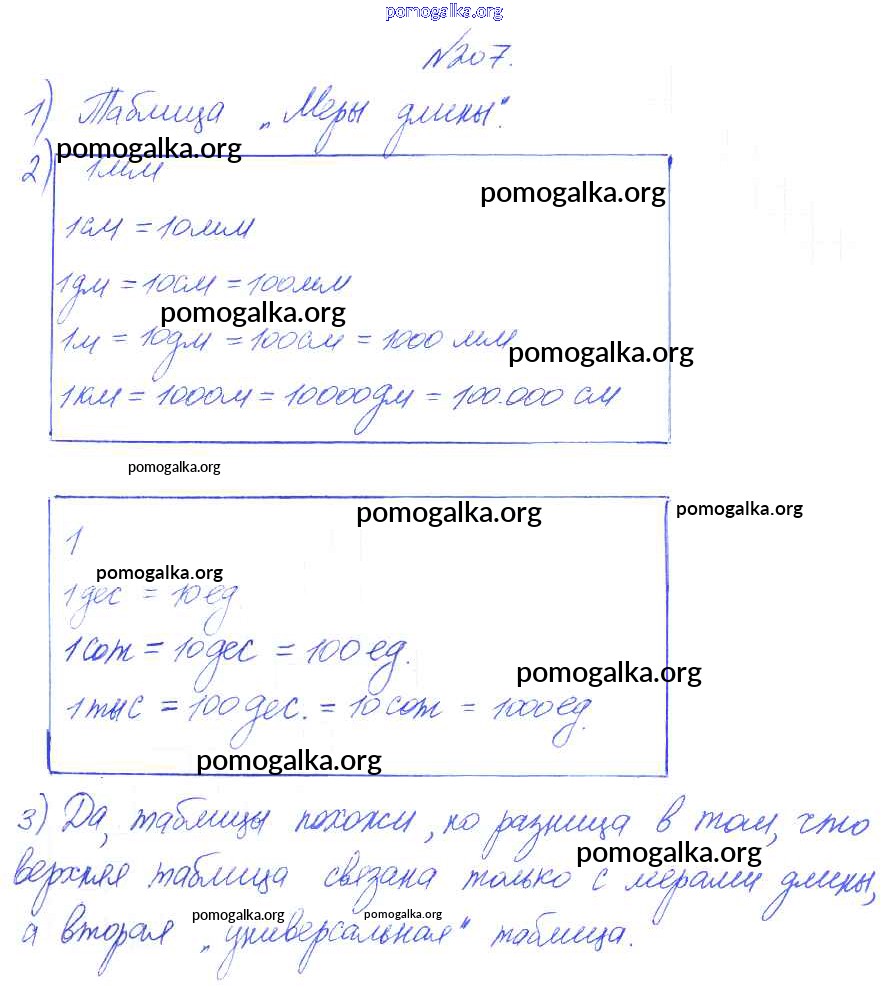 pomogalka.org
№207.
1) Таблица „Меры длины".
pomogalka.org
2) 1мм
pomogalka.org
1см = 10мм
1дм = 10см = 100мм
pomogalka.org
1м = 10дм = 100см = 1000 мм
pomogalka.org
1км = 1000м = 10000дм = 100.000 см
pomogalka.org
pomogalka.org pomogalka.org
1
pomogalka.org
1дес = 10ед
1сот = 10дес = 100ед.
pomogalka.org
1тыс = 100дес. = 10сот = 1000ед.
pomogalka.org
3) Да, таблицы похожи, но разница в том, что
pomogalka.org
верхняя таблица связана только с мерами длины,
pomogalka.org pomogalka.org
а вторая „универсальная" таблица.